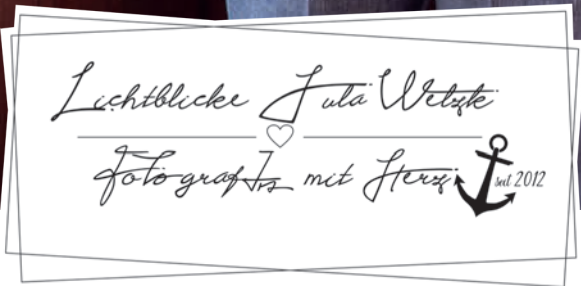 Lichtblicke Jula Welzk
Fotografin mit Herz
seit 2012